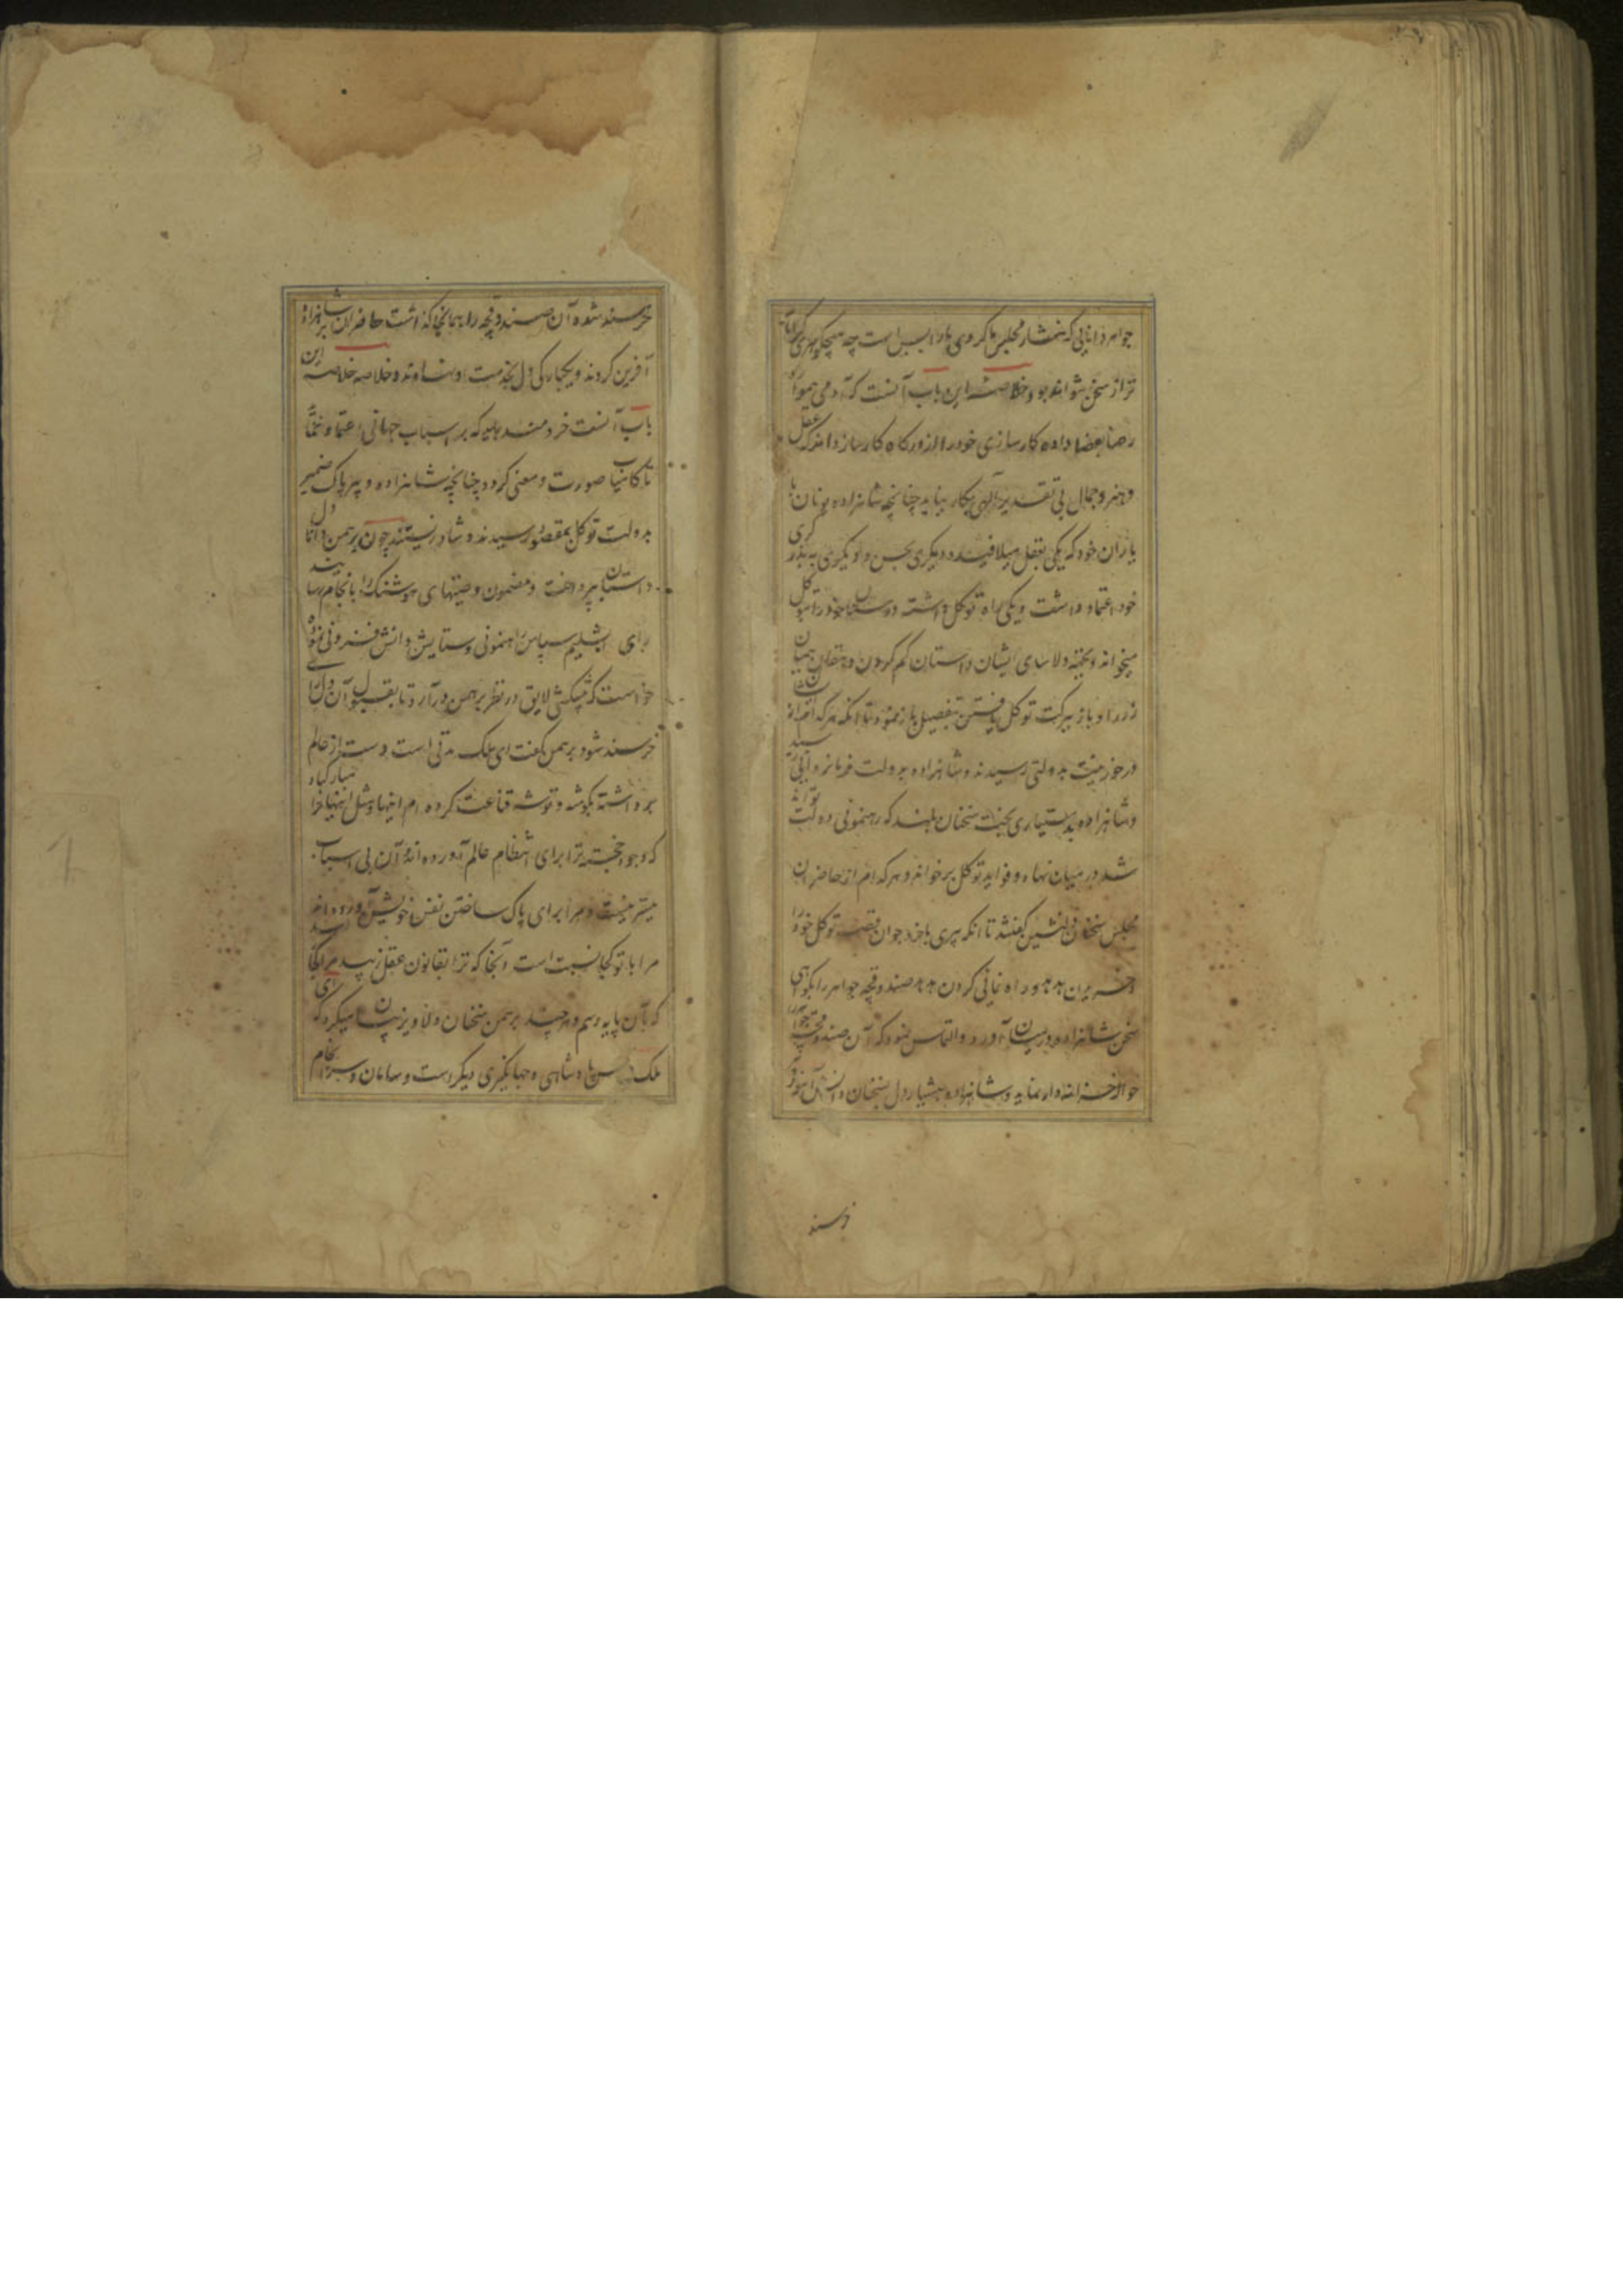 جواهر دانایی که نثار مجلس ما کردی ما را بس است چه هیچ گوهری گرانمایه
تر از سخن نتواند بود و خلاصه این باب آنست که آدمی همواره
رضا بقضا داده کارسازی خود را از درگاه کارساز داند که عقل
و هنر و جمال بی تقدیر الهی بکار نیاید چنانچه شاهزاده یونان با
یاران خود که یکی بعقل میلافید و دیگری بحسن و دیگری به هنرگری
خود اعتماد داشت و یکی راه توکل داشته دوستان خود را بتوکل
میخواند و بجهة دلاسای ایشان داستان گم کردن دهقان همیان
زر را و باز ببرکت توکل یافتن بتفصیل باز نمود تا آنکه هر کدام اندازه
در خور نیت بدولتی رسیدند و شاهزاده بدولت فرمانروایی رسید
و شاهزاده بدستیاری بخت سخنان بلند که رهنمونی دولت تواند
شد در میان نهاد و فواید توکل برخواند و هر کدام از حاضران
مجلس سخنان دلنشین گفتند تا آنکه پیری با خرد جوان قصه توکل خود را
و خریدن هدهد و راه نمائی کردن هدهد صندوقچه جواهر را بگواهی
سخن شاهزاده در میان آورد و التماس نمود که آن صندوقچه جواهر را
حواله خزانه‌دار نماید و شاهزاده هشیار دل بسخنان دانش آموز او
خرسند
خرسند شده آن صندوقچه را همانجا گذاشت حاضران بر شاهزاده
آفرین کردند و یکبارگی دل بخدمت او نهادند و خلاصه خلاصه این
باب آنست خردمند باید که بر اسباب جهانی اعتماد ننماید
تا کامیاب صورت و معنی گردد چنانچه شاهزاده و پیر پاک ضمیر
بدولت توکل بمقصود رسیدند و شاد زیستند چون برهمن دانا دل
داستان بپرداخت و مضمون وصیتهای هوشنگ را بانجام رسانید
رای دابشلیم سپاس راهنمونی و ستایش دانش فزونی نموده
خواست که پیشکشی لایق در نظر برهمن در آرد تا بقبول آن دل رای
خرسند شود برهمن گفت ای ملک مدتی است دست از عالم
برداشته بگوشه و توشه قناعت کرده‌ام اینها و مثل اینها ترا مبارکباد
که وجود خجسته ترا برای انتظام عالم آورده‌اند و آن بی اسباب
میسر نیست و مرا برای پاک ساختن نفس خویش آورده‌اند
مرا با تو کجا نسبت است و آنجا که ترا بقانون عقل زیبد مرا کجا رسد
که بآن پایه رسم و هر چند برهمن سخنان دلاویز بیان میکرد که ای
ملک پادشاهی و جهانگیری دیگر است و سامان و سرانجام